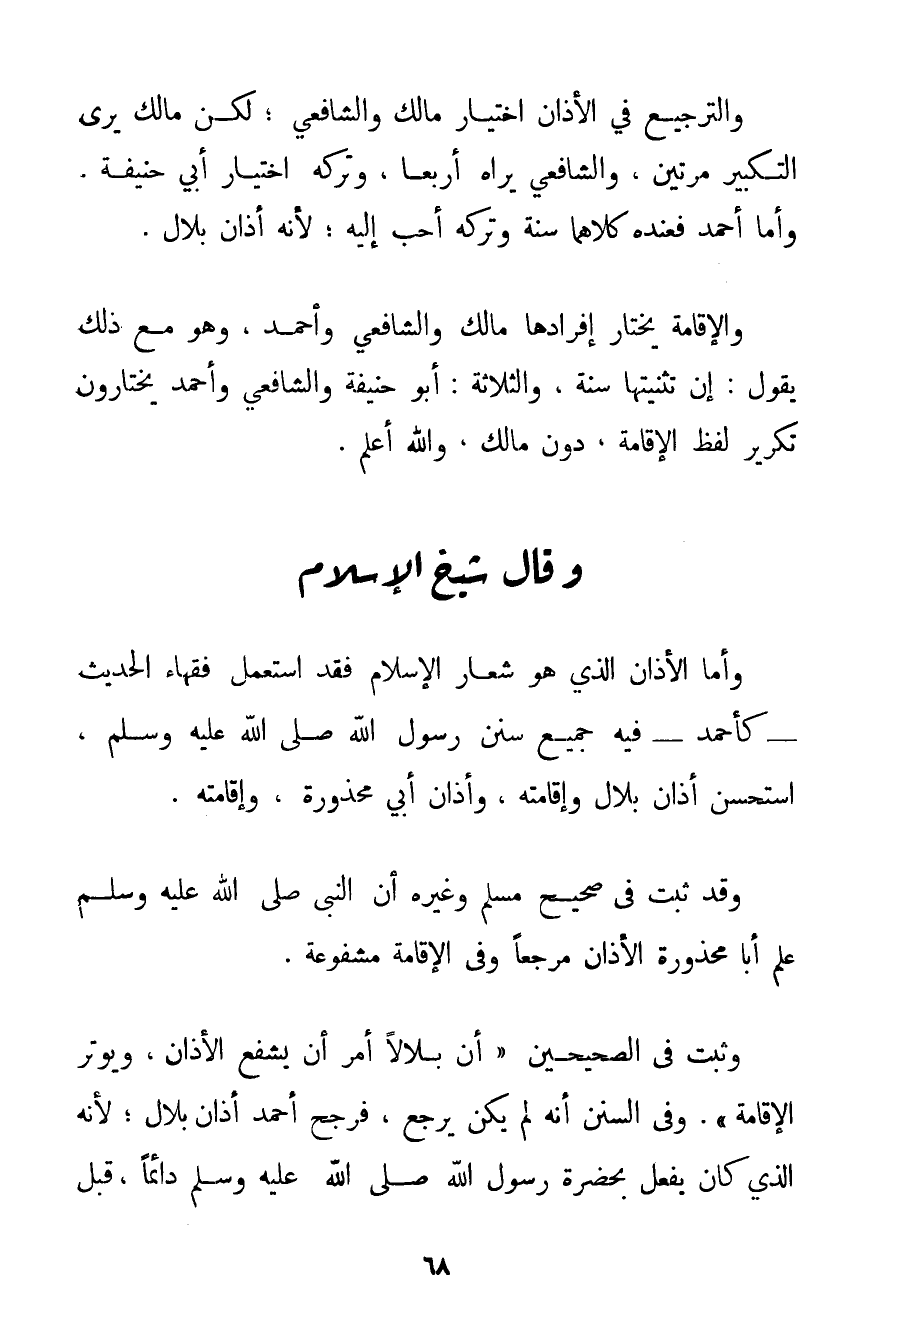 والترجيع في الأذان اختيار مالك والشافعي ؛ لكن مالك يرى
التكبير مرتين ، والشافعي يراه أربعا ، وتركه اختيار أبي حنيفة .
وأما أحمد فعنده كلاهما سنة وتركه أحب إليه ؛ لأنه أذان بلال .
والإقامة يختار إفرادها مالك والشافعي وأحمد ، وهو مع ذلك
يقول : إن تثنيتها سنة ، والثلاثة : أبو حنيفة والشافعي وأحمد يختارون
تكرير لفظ الإقامة ، دون مالك ، والله أعلم .
وقال شيخ الإسلام
وأما الأذان الذي هو شعار الإسلام فقد استعمل فقهاء الحديث
ــ كأحمد ــ فيه جميع سنن رسول الله صلى الله عليه وسلم ،
استحسن أذان بلال وإقامته ، وأذان أبي محذورة ، وإقامته .
وقد ثبت فى صحيح مسلم وغيره أن النبى صلى الله عليه وسلم
علم أبا محذورة الأذان مرجعاً وفى الإقامة مشفوعة .
وثبت فى الصحيحين « أن بلالاً أمر أن يشفع الأذان ، ويوتر
الإقامة » . وفى السنن أنه لم يكن يرجع ، فرجح أحمد أذان بلال ؛ لأنه
الذي كان يفعل بحضرة رسول الله صلى الله عليه وسلم دائماً ، قبل
٦٨